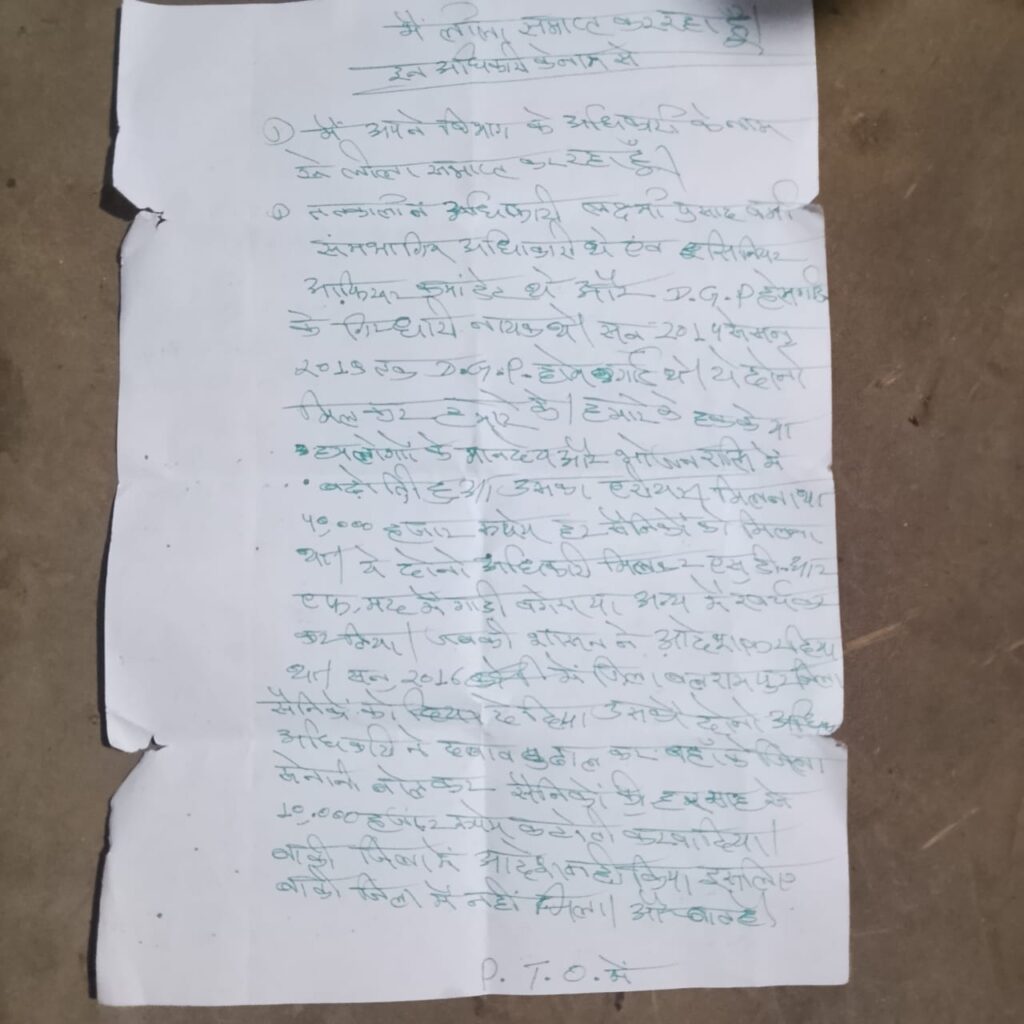 मैं लीला समाप्त कर रहा हूँ
इन अधिकारी के नाम से
① मैं अपने विभाग के अधिकारी के नाम
से लीला समाप्त कर रहा हूँ।
① तत्कालीन अधिकारी प्रसाद वर्मा
अधिकारी थे एंव सिनियर
कमांडेट थे और D.G.P
के थे। सन 2014 से सन्
2018 तक D.G.P. होमगार्ड थे। ये दोनो
मिलकर हमारे के। हमारे के हक के या
हमलोगों के मानदेय और भोजन राशि में
उसका मिलना था
हजार रूपये हर सैनिकों को मिलना
था। ये दोनो अधिकारी मिलकर एस.डी.आर
एफ. मद में गाड़ी वगेरा या अन्य में
कर दिया। जबकी शासन ने आदेश दिया
था। सन् 2016 में जिला बलरामपुर जिला
सैनिकों को दे दिया। उसको दोनो
अधिकारी ने दबाव डाल कर वहाँ के जिला
सेनानी बोलकर सैनिकों की हर माह से
10,000 हजार रूपये कटोती करवा दिया।
बाकी जिला में आदेश नही किया इसलिए
बाकी जिला में नहीं मिला। और बात है।
P. T. O. में